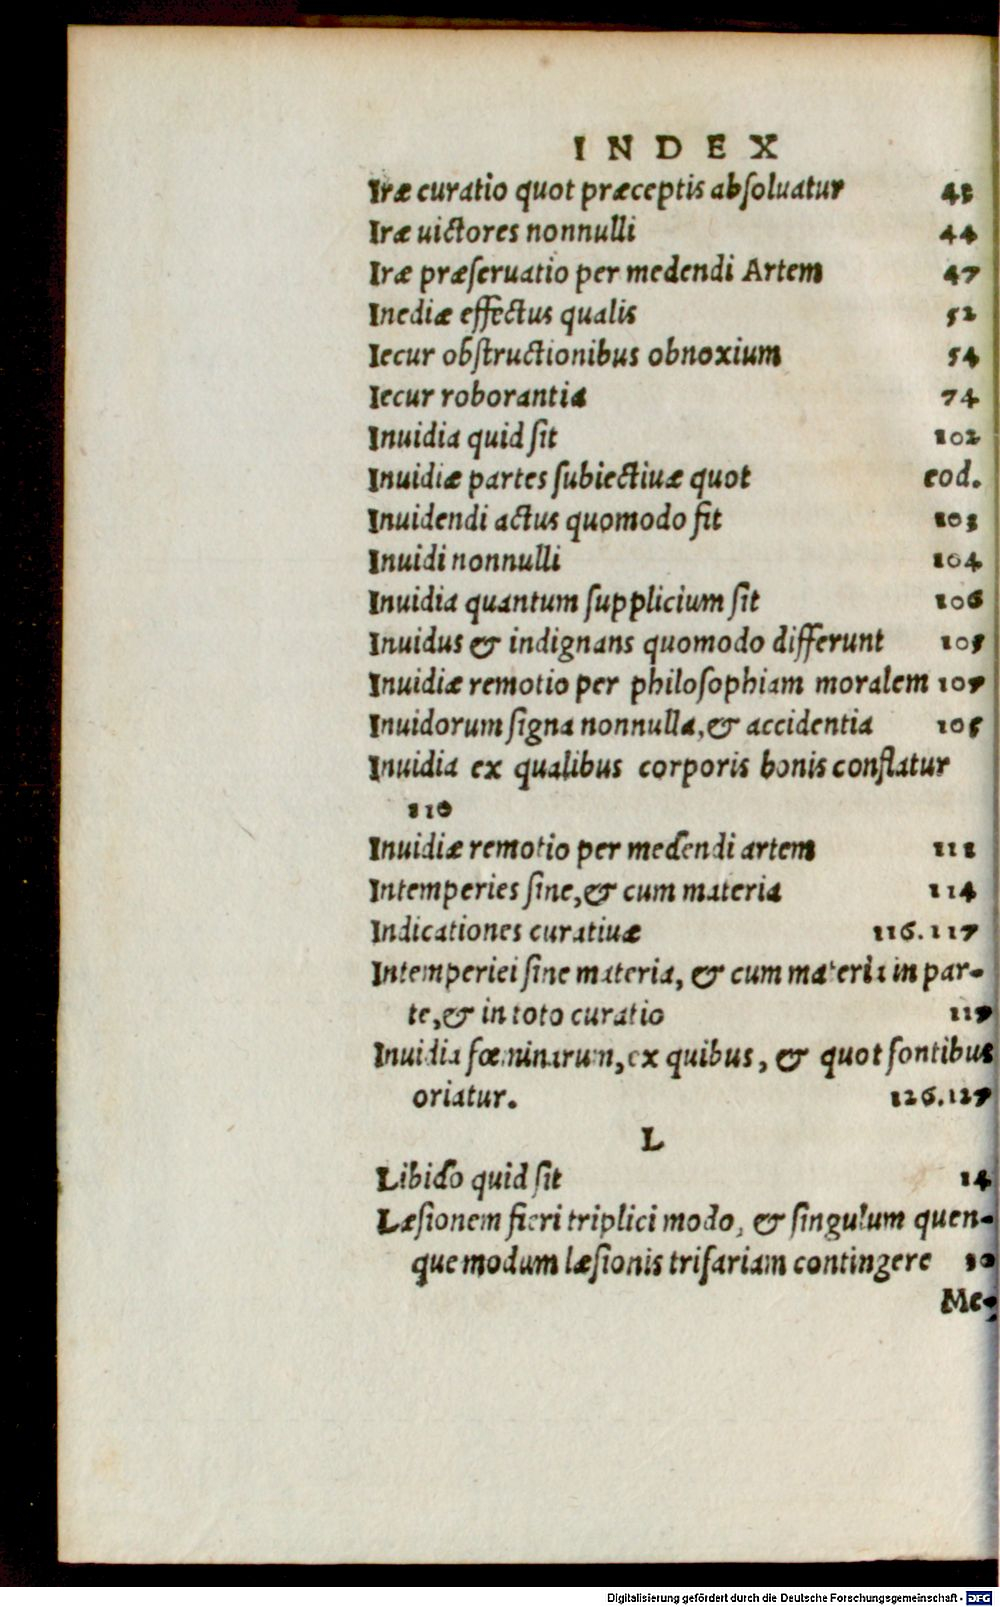 INDEX
Iræ curatio quot præceptis absoluatur 43
Iræ uictores nonnulli 44
Iræ præseruatio per medendi Artem 47
Inediæ effectus qualis 52
Iecur obstructionibus obnoxium 54
Iecur roborantia 74
Inuidia quid sit 102
Inuidiæ partes subiectiuæ quot eod.
Inuidendi actus quomodo fit 103
Inuidi nonnulli 104
Inuidia quantum supplicium sit 106
Inuidus & indignans quomodo differunt 105
Inuidiæ remotio per philosophiam moralem 107
Inuidorum signa nonnulla, & accidentia 105
Inuidia ex qualibus corporis bonis conflatur
110
Inuidiæ remotio per medendi artem 111
Intemperies sine, & cum materia 114
Indicationes curatiuæ 116.117
Intemperiei sine materia, & cum materia in par-
te, & in toto curatio 117
Inuidia fœminarum, ex quibus, & quot fontibus
oriatur. 126.127
L
Libido quid sit 14
Læsionem fieri triplici modo, & singulum quen-
que modum læsionis trifariam contingere 10
Me-
Digitalisierung gefördert durch die Deutsche Forschungsgemeinschaft - DFG